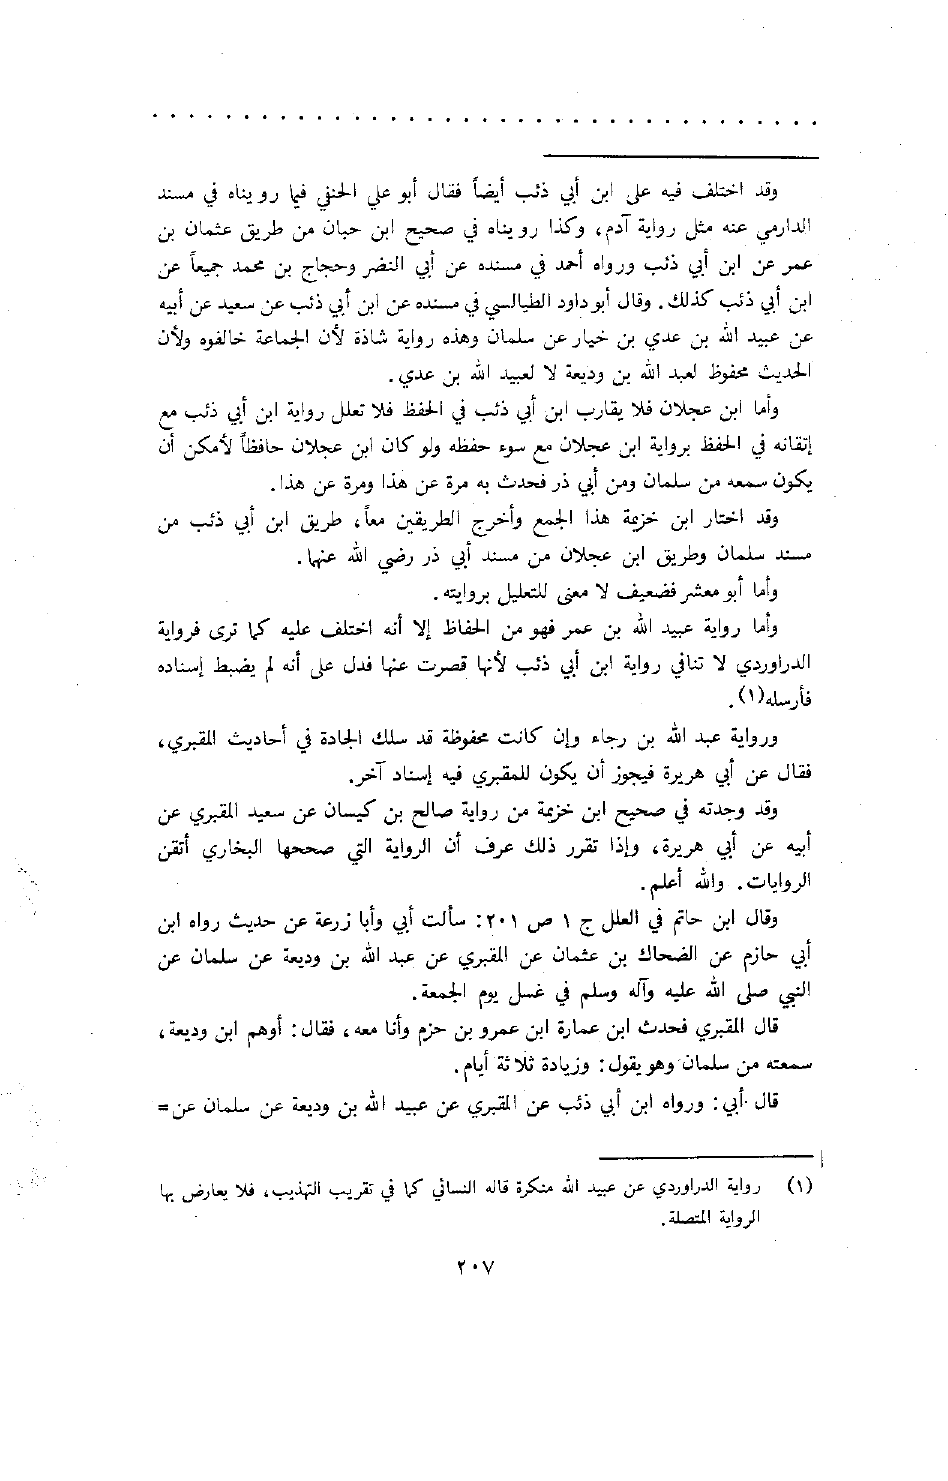 وقد اختلف فيه على ابن أبي ذئب أيضاً فقال أبو علي الحنفي فيما رويناه في مسند
الدارمي عنه مثل رواية آدم، وكذا رويناه في صحيح ابن حبان من طريق عثمان بن
عمر عن ابن أبي ذئب ورواه أحمد في مسنده عن أبي النضر وحجاج بن محمد جميعاً عن
ابن أبي ذئب كذلك. وقال أبو داود الطيالسي في مسنده عن ابن أبي ذئب عن سعيد عن أبيه
عن عبيد الله بن عدي بن خيار عن سلمان وهذه رواية شاذة لأن الجماعة خالفوه ولأن
الحديث محفوظ لعبد الله بن وديعة لا لعبيد الله بن عدي.
وأما ابن عجلان فلا يقارب ابن أبي ذئب في الحفظ فلا تعلل رواية ابن أبي ذئب مع
إتقانه في الحفظ برواية ابن عجلان مع سوء حفظه ولو كان ابن عجلان حافظاً لأمكن أن
يكون سمعه من سلمان ومن أبي ذر فحدث به مرة عن هذا ومرة عن هذا.
وقد اختار ابن خزيمة هذا الجمع وأخرج الطريقين معاً، طريق ابن أبي ذئب من
مسند سلمان وطريق ابن عجلان من مسند أبي ذر رضي الله عنهما.
وأما أبو معشر فضعيف لا معنى للتعليل بروايته.
وأما رواية عبيد الله بن عمر فهو من الحفاظ إلا أنه اختلف عليه كما ترى فرواية
الدراوردي لا تنافي رواية ابن أبي ذئب لأنها قصرت عنها فدل على أنه لم يضبط إسناده
فأرسله(١).
ورواية عبد الله بن رجاء وإن كانت محفوظة قد سلك الجادة في أحاديث المقبري،
فقال عن أبي هريرة فيجوز أن يكون للمقبري فيه إسناد آخر.
وقد وجدته في صحيح ابن خزيمة من رواية صالح بن كيسان عن سعيد المقبري عن
أبيه عن أبي هريرة، وإذا تقرر ذلك عرف أن الرواية التي صححها البخاري أتقن
الروايات. والله أعلم.
وقال ابن حاتم في العلل ج ١ ص ٢٠١: سألت أبي وأبا زرعة عن حديث رواه ابن
أبي حازم عن الضحاك بن عثمان عن المقبري عن عبد الله بن وديعة عن سلمان عن
النبي صلى الله عليه وآله وسلم في غسل يوم الجمعة.
قال المقبري فحدث ابن عمارة ابن عمرو بن حزم وأنا معه، فقال: أوهم ابن وديعة،
سمعته من سلمان وهو يقول: وزيادة ثلاثة أيام.
قال أبي: ورواه ابن أبي ذئب عن المقبري عن عبيد الله بن وديعة عن سلمان عن=
(١) رواية الدراوردي عن عبيد الله منكرة قاله النسائي كما في تقريب التهذيب، فلا يعارض بها
الرواية المتصلة.
٢٠٧